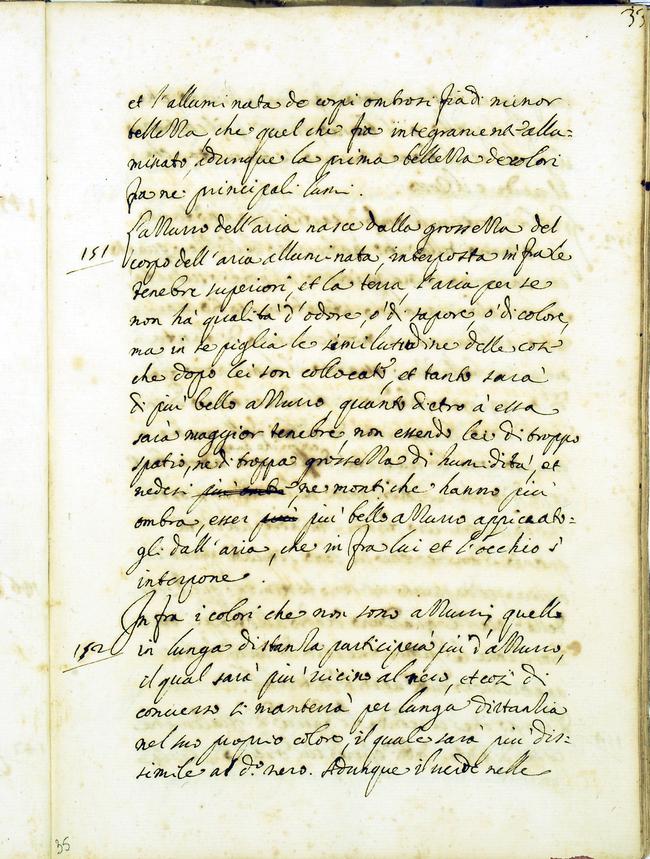 33
et l'alluminata de corpi ombrosi fia di minor
bellezza che quel che fia integramente allu=
minato, adunque la prima bellezza de colori
fia ne principali lumi.
L'azzurro dell'aria nasce dalla grossezza del
151 corpo dell'aria alluminata, interposta in fra le
tenebre superiori, et la terra, l'aria per se
non hà qualità d'odore, ò di sapore, ò di colore,
ma in se piglia le similitudine delle cose
che dopo lei son collocate, et tanto sarà
di più bello azzurro, quanto dietro à essa
sarà maggior tenebre, non essendo lei di troppo
spatio, ne di troppa grossezza di humidità, et
vedesi più ombre, ne monti che hanno più
ombra, esser più più bello azzurro appicato=
gli dall'aria, che in fra lui et l'occhio s'
interpone.
In fra i colori che non sono azzurri, quello
152 in lunga distanzia participerà più d'azzurro,
il qual sarà più vicino al nero, et così di
converso si manterrà per lunga distantia
nel suo proprio colore, il quale sarà più dis=
simile al d.º nero. Adunque il verde nelle
35